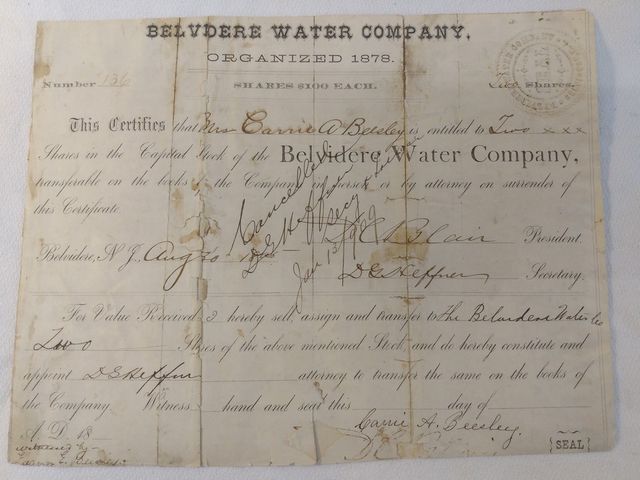 BELVDERE WATER COMPANY,
ORGANIZED 1878.
Number 136 SHARES $100 EACH. Two Shares.
This Certifies that Mrs Carrie A Beesley is entitled to Two xxx
Shares in the Capital Stock of the Belvidere Water Company,
transferable on the books of the Company in herself or by attorney on surrender of
this Certificate.
Cancelled
D G Heffner
Secy
Jan 13 1909
Belvidere, N J. Aug Blair President.
D G Heffner Secretary.
For Value Received, I hereby sell, assign and transfer to the Belvidere Water Co
Two Shares of the above mentioned Stock, and do hereby constitute and
appoint D G Heffner attorney to transfer the same on the books of
the Company. Witness hand and seal this day of
A. D. 18 Carrie A. Beesley.
witnessed by- {SEAL}